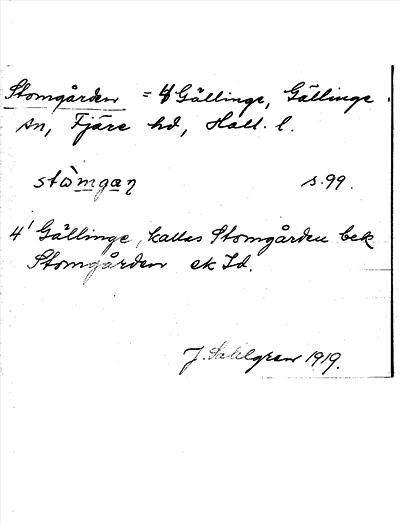 Stomgården = 4 Gällinge, Gällinge
sn, Fjäre hd, Hall. l.
stòmgaη s. 99.
4¹ Gällinge, kallas Stomgården bek
Stomgården ek Id.
J. Sahlgren 1919.